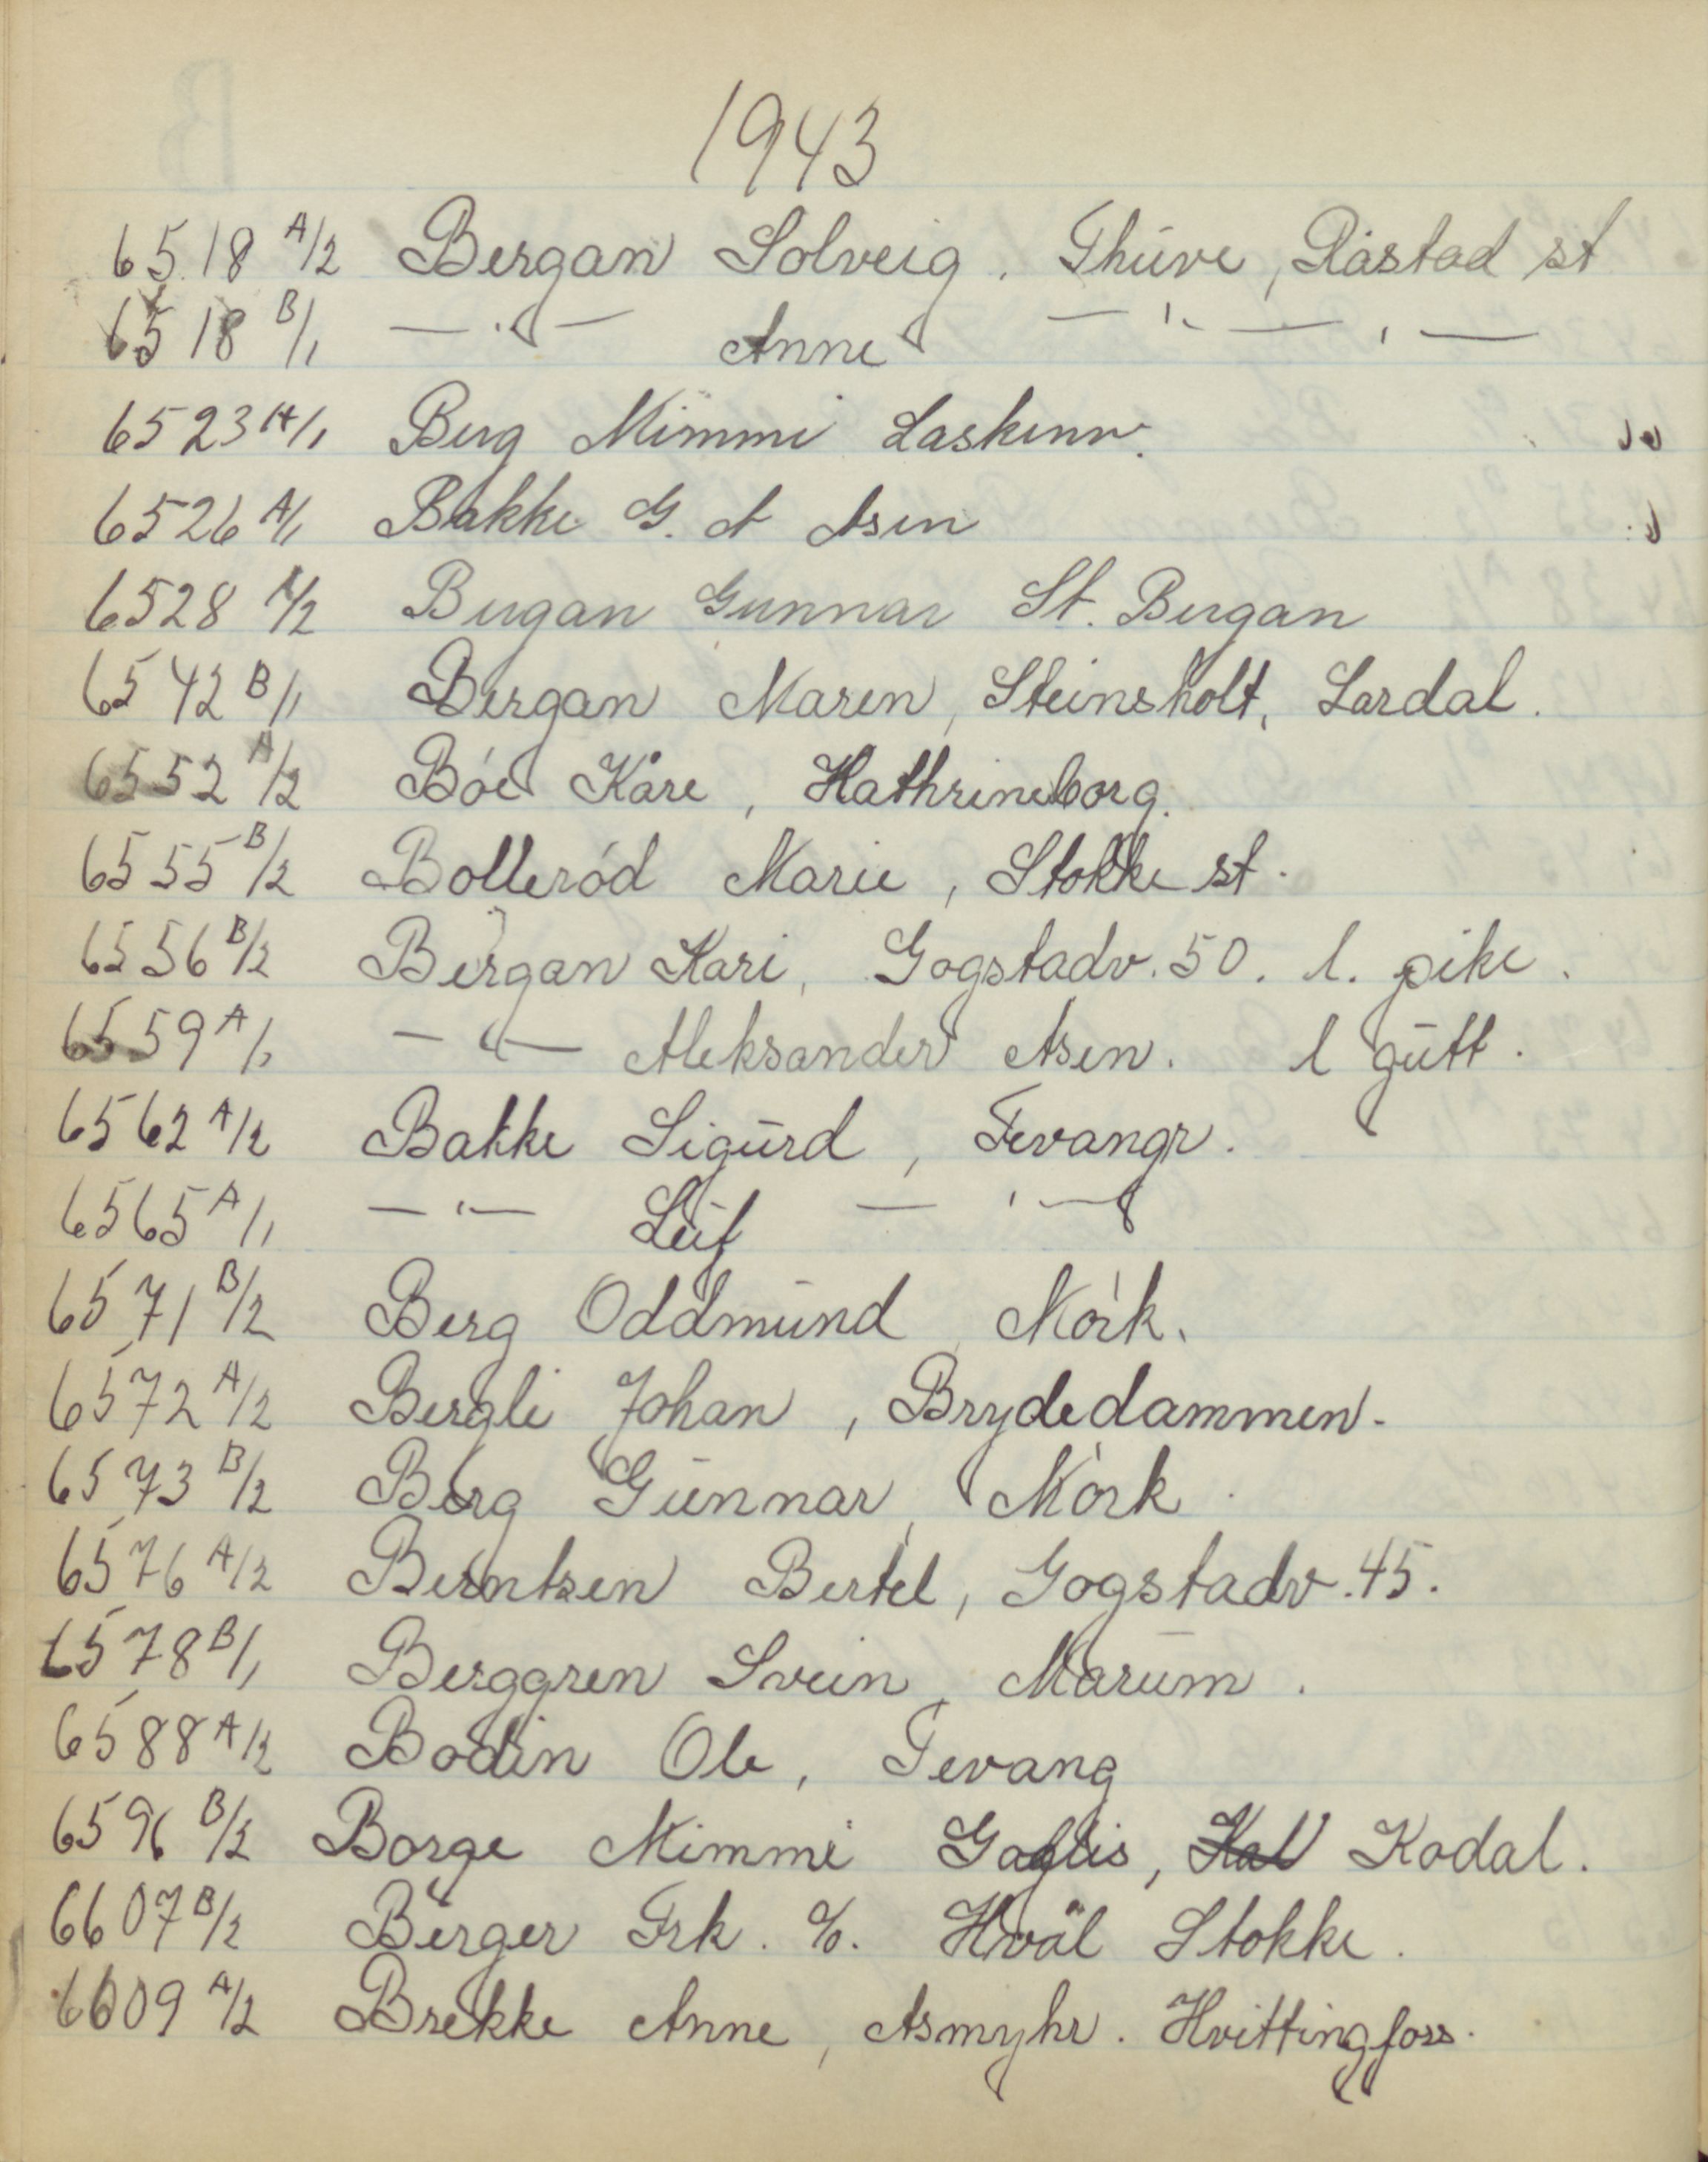 1943
6518 A/2 Bergan Solveig. Thūve, Råstad st
6518 B/1 — " — Anne — " — " —
6523 A/1 Berg Mimmi Laskenv.
6526 A/1 Bakke G. A Åsen
6528 A/2 Bergan Gunnar St. Bergan
6542 B/1 Bergan Maren, Steinsholt, Lardal.
6552 A/2 Bóe Kåre, Kathrineborg.
6555 B/2 Bolleród Marie, Stokke st.
6556 B/2 Bergan Kari, Gogstadv. 50. l. pike.
6559 A/1 — " — Aleksander Åsen. l gūtt.
6562 A/2 Bakke Sigūrd, Fevangr.
6565 A/1 — " — Leif — " —
6571 B/2 Berg Oddmūnd, Mórk.
6572 A/2 Bergli Johan, Brydedammen.
6573 B/2 Berg Gūnnar, Mórk.
6576 A/2 Berntsen Bertel, Gogstadv. 45.
6578 B/1 Berggren Svein, Marūm.
6588 A/2 Bodin Ole, Fevang
6596 B/2 Borge Mimmi Gaflis, Kal Kodal.
6607 B/2 Berger Frk. %. Hvål Stokke.
6609 A/2 Brekke Anne, Åsmyhr. Hvittingfoss.